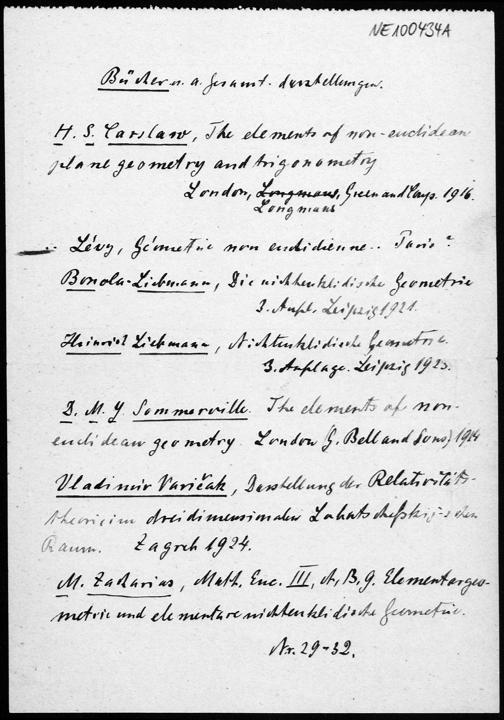 NE100434A
Bücher u. a. Gesamt-darstellungen.
H. S. Carslaw, The elements of non-euclidean
plane geometry and trigonometry
London, Longmans, Green and Comp. 1916.
Longmans
Lévy, Géometrie non euclidienne .. Paris ?
Bonola-Liebmann, Die nichteuklidische Geometrie
3. Aufl. Leipzig 1921.
Heinrich Liebmann, Nichteuklidische Geometrie.
3. Auflage. Leipzig 1923.
D. M. Y. Sommerville. The elements of non-
euclidean geometry. London (G. Bell and Sons) 1914
Vladimir Varičak, Darstellung der Relativitäts-
theorie im dreidimensionalen Lobatschefskij-schen
Raum. Zagreb 1924.
M. Zacharias, Math. Enc. III, A, B. 9. Elementargeo-
metrie und elementare nichteuklidische Geometrie.
Nr. 29-32.